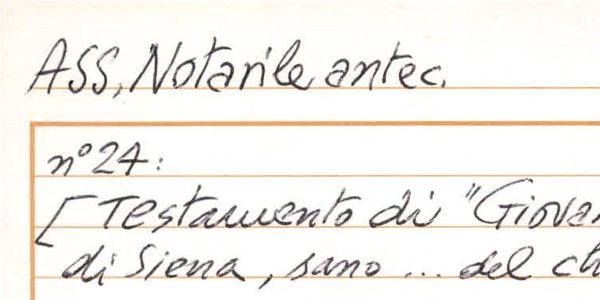 ASS, Notarile antec.
n° 27:
[Testamento di "Giova
di Siena, sano ... del ch